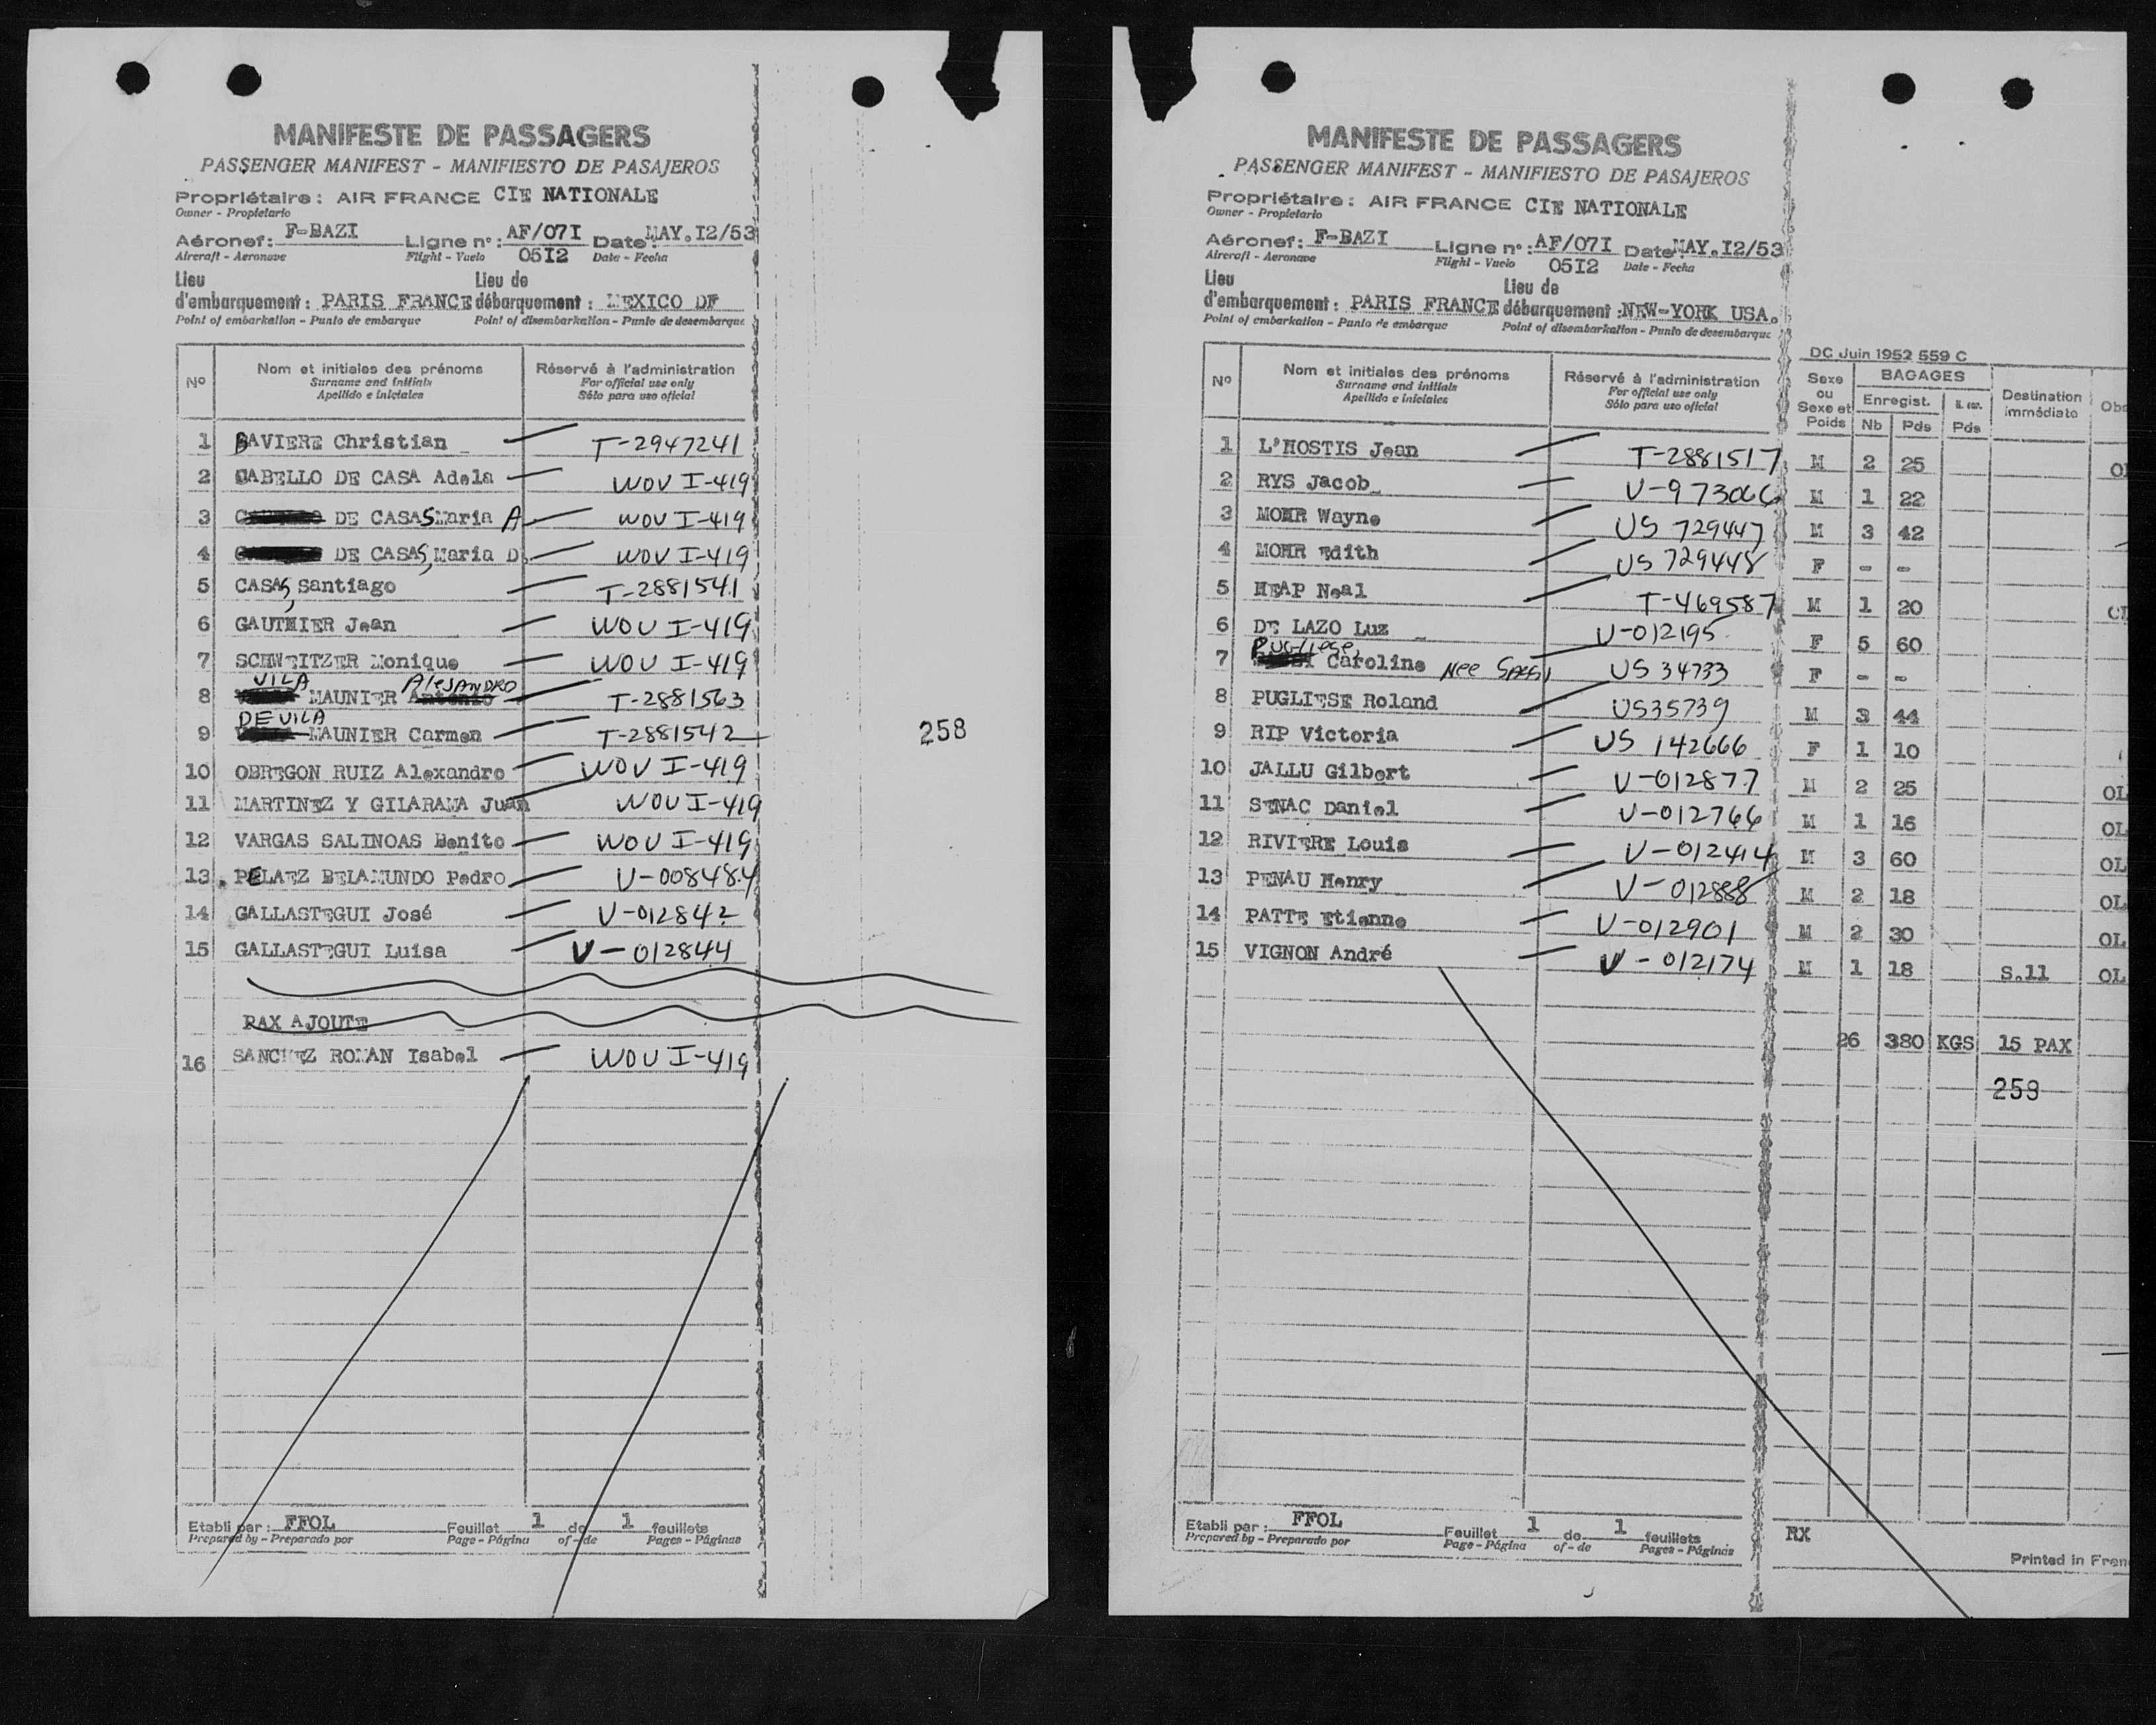 MANIFESTE DE PASSAGERS
PASSENGER MANIFEST - MANIFIESTO DE PASAJEROS
Propriétaire : AIR FRANCE CIE NATIONALE
Owner - Propietario
Aéronef : F-BAZI Ligne n° : AF/07I Date : MAY.I2/53
Aircraft - Aeronave Flight - Vuelo 05I2 Date - Fecha
Lieu Lieu de
d'embarquement : PARIS FRANCE débarquement : MEXICO DF
Point of embarkation - Punto de embarque Point of disembarkation - Punto de desembarque
Nº Nom et initiales des prénoms Réservé à l'administration
Surname and initials For official use only
Apellido e iniciales Sólo para uso oficial
1 BAVIERE Christian T-2947241
2 CABELLO DE CASA Adela WOV I-419
3 DE CASAS Maria A WOV I-419
4 DE CASAS, Maria D. WOV I-419
5 CASAS, Santiago T-2881541
6 GAUTHIER Jean WOV I-419
7 SCHWEITZER Monique WOV I-419
8 VILA MAUNIER Antonio AleJANDRO T-2881563
9 DE VILA MAUNIER Carmen T-2881542
10 OBREGON RUIZ Alexandro WOV I-419
11 MARTINEZ Y GILARAMA Juan WOV I-419
12 VARGAS SALINOAS Benito WOV I-419
13 PELAEZ BELAMUNDO Pedro V-008484
14 GALLASTEGUI José V-012842
15 GALLASTEGUI Luisa V-012844
PAX AJOUTE
16 SANCHEZ ROMAN Isabel WOV I-419
258
Etabli par : FFOL Feuillet 1 de 1 feuillets
Prepared by - Preparado por Page - Página of - de Pages - Páginas
MANIFESTE DE PASSAGERS
PASSENGER MANIFEST - MANIFIESTO DE PASAJEROS
Propriétaire : AIR FRANCE CIE NATIONALE
Owner - Propietario
Aéronef : F-BAZI Ligne n° : AF/07I Date : MAY.I2/53
Aircraft - Aeronave Flight - Vuelo 05I2 Date - Fecha
Lieu Lieu de
d'embarquement : PARIS FRANCE débarquement : NEW-YORK USA.
Point of embarkation - Punto de embarque Point of disembarkation - Punto de desembarque
DC Juin 1952 559 C
Nº Nom et initiales des prénoms Réservé à l'administration Sexe ou Sexe et Poids BAGAGES Destination immédiate
Surname and initials For official use only Enregist.
Apellido e iniciales Sólo para uso oficial Nb Pds Pds
1 L'HOSTIS Jean T-2881517 M 2 25
2 RYS Jacob V-973066 M 1 22
3 MOHR Wayne US 729447 M 3 42
4 MOHR Edith US 729448 F - -
5 HEAP Neal T-469587 M 1 20
6 DE LAZO Luz V-012195 F 5 60
7 PUGLIESE, Caroline Nee US 34733 F - -
8 PUGLIESE Roland US35739 M 3 44
9 RIP Victoria US 142666 F 1 10
10 JALLU Gilbert V-012877 M 2 25 OL
11 SENAC Daniel V-012766 M 1 16 OL
12 RIVIERE Louis V-012414 M 3 60 OL
13 PENAU Henry V-012888 M 2 18 OL
14 PATTE Etienne V-012901 M 2 30 OL
15 VIGNON André V-012174 M 1 18 S.11 OL
26 380 KGS 15 PAX
259
Etabli par : FFOL Feuillet 1 de 1 feuillets RX
Prepared by - Preparado por Page - Página of - de Pages - Páginas
Printed in Fren